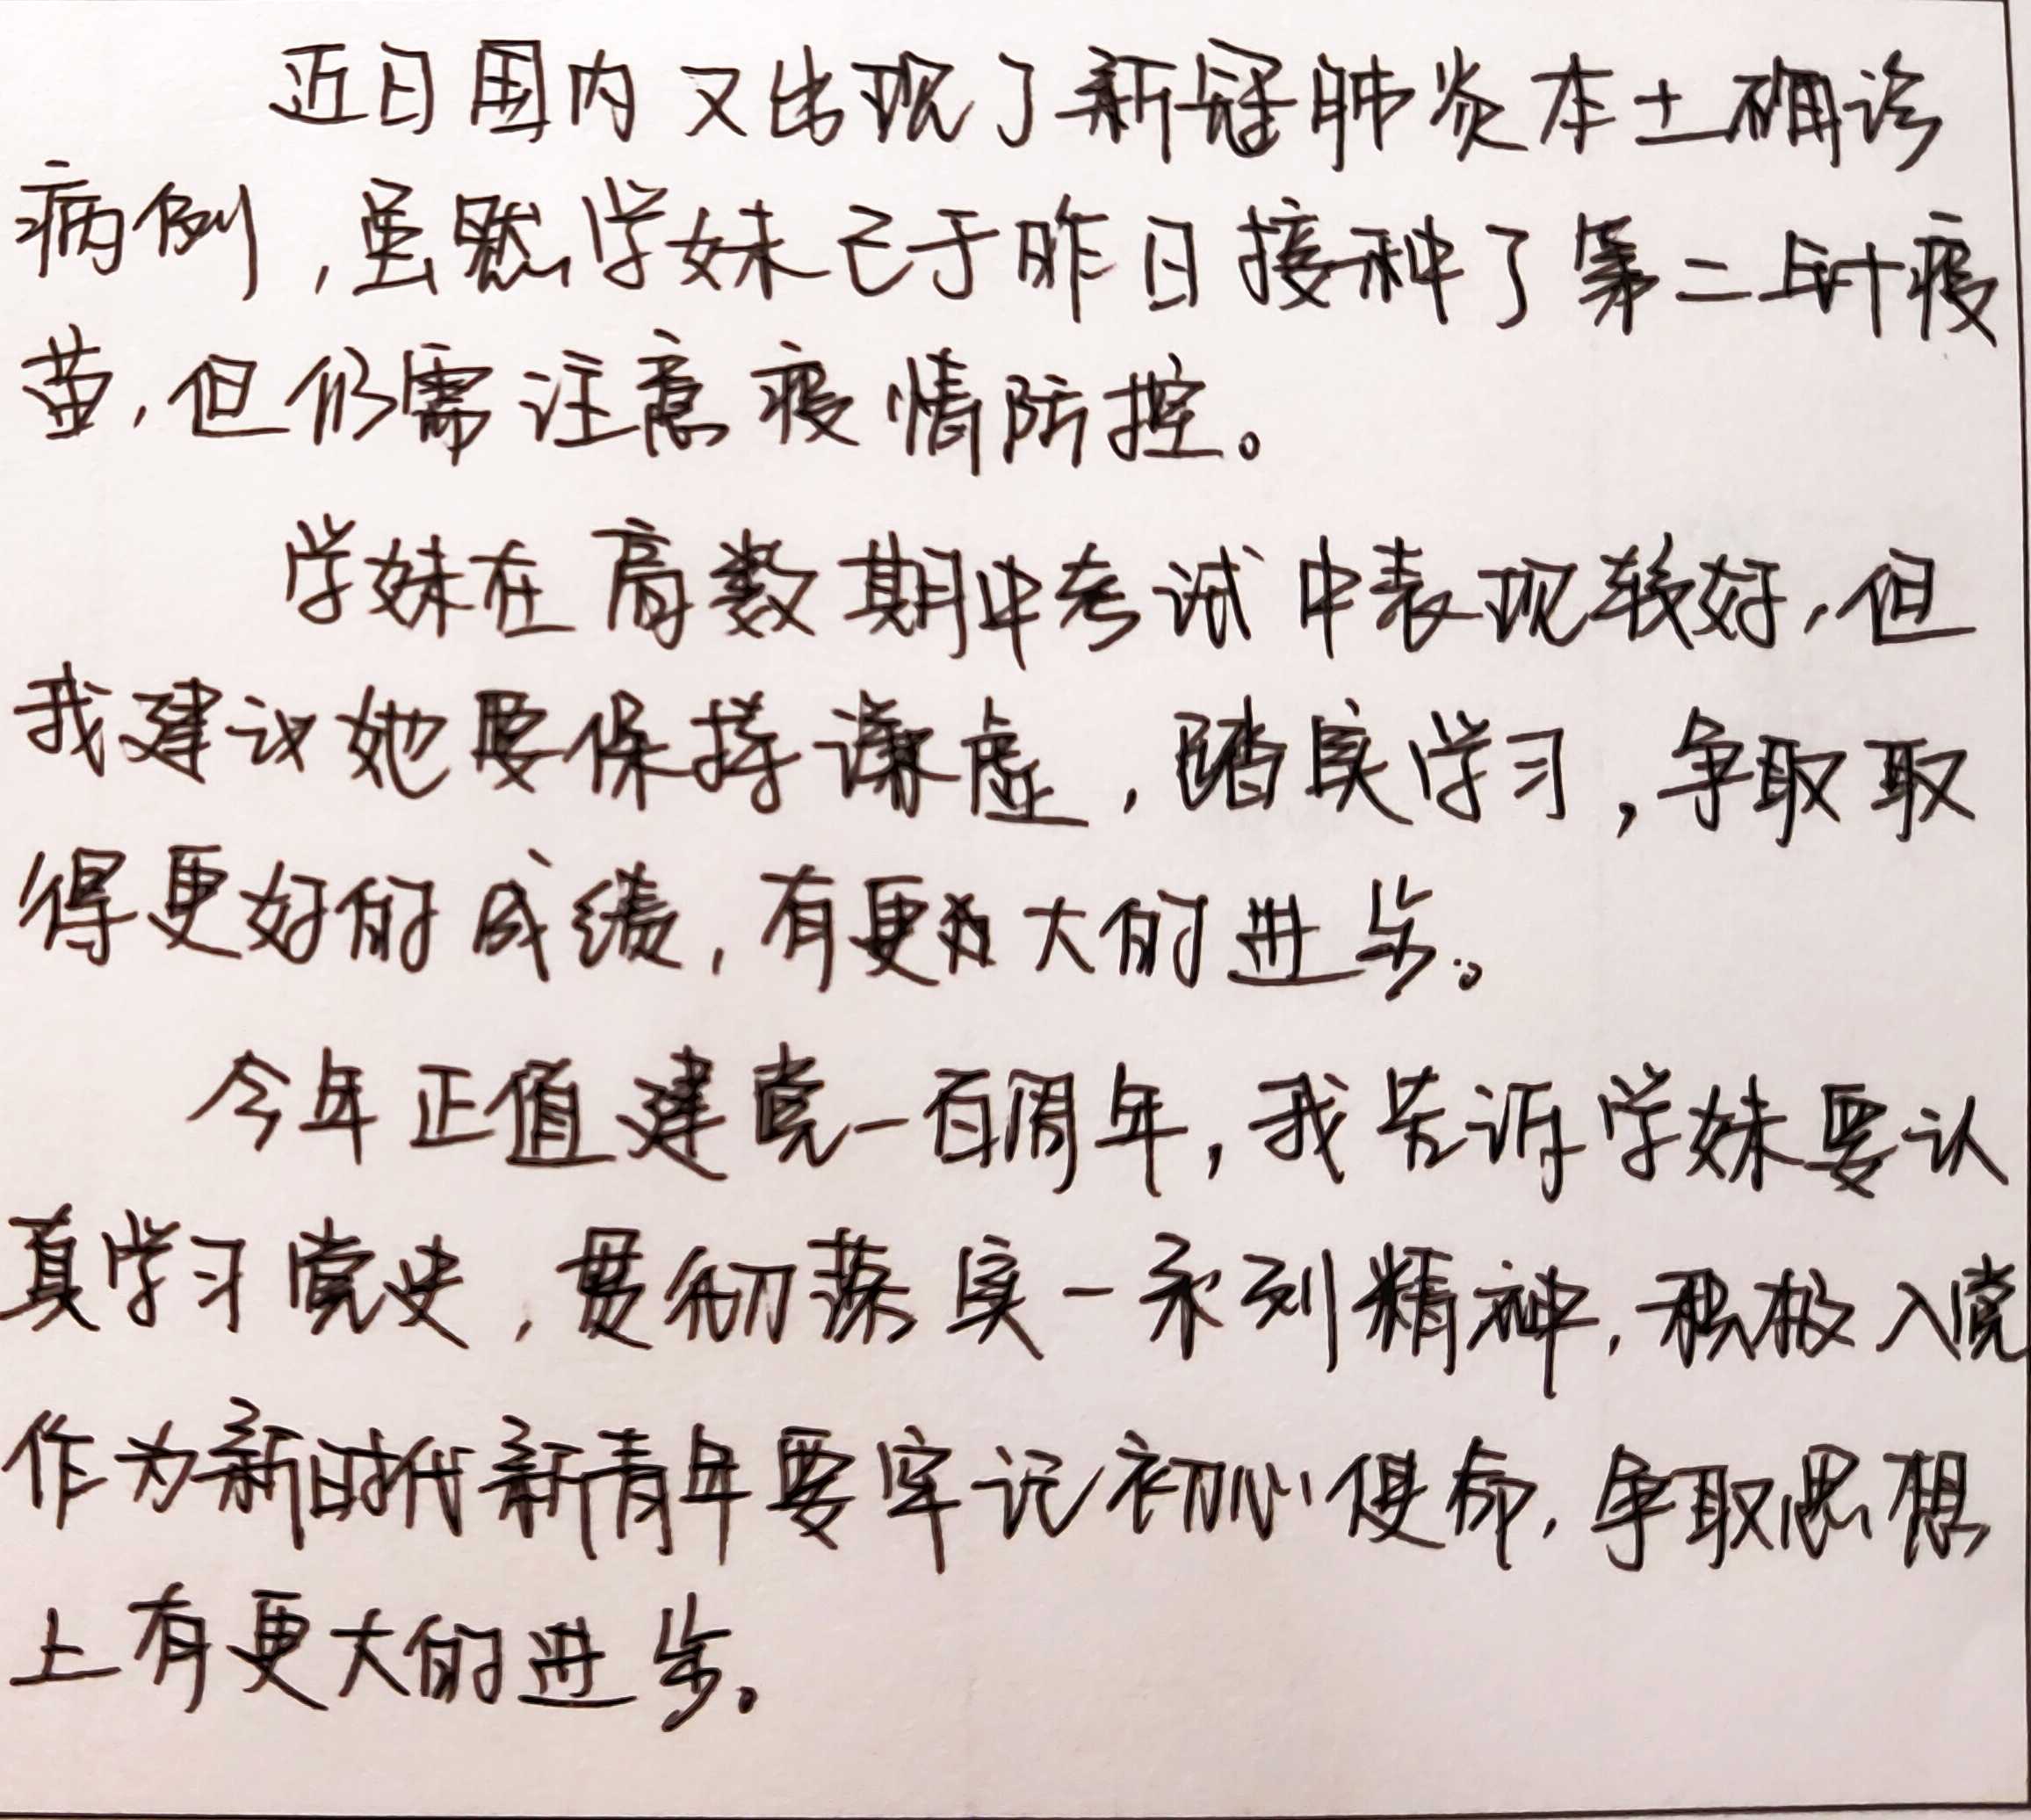 近日国内又出现了新冠肺炎本土确诊
病例,虽然学妹已于昨日接种了第二针疫
苗,但仍需注意疫情防控。
学妹在高数期中考试中表现较好,但
我建议她要保持谦虚,踏实学习,争取取
得更好的成绩,有更为大的进步。
今年正值建党一百周年,我告诉学妹要认
真学习党史,贯彻落实一系列精神,积极入党
作为新时代新青年要牢记初心使命,争取思想
上有更大的进步。